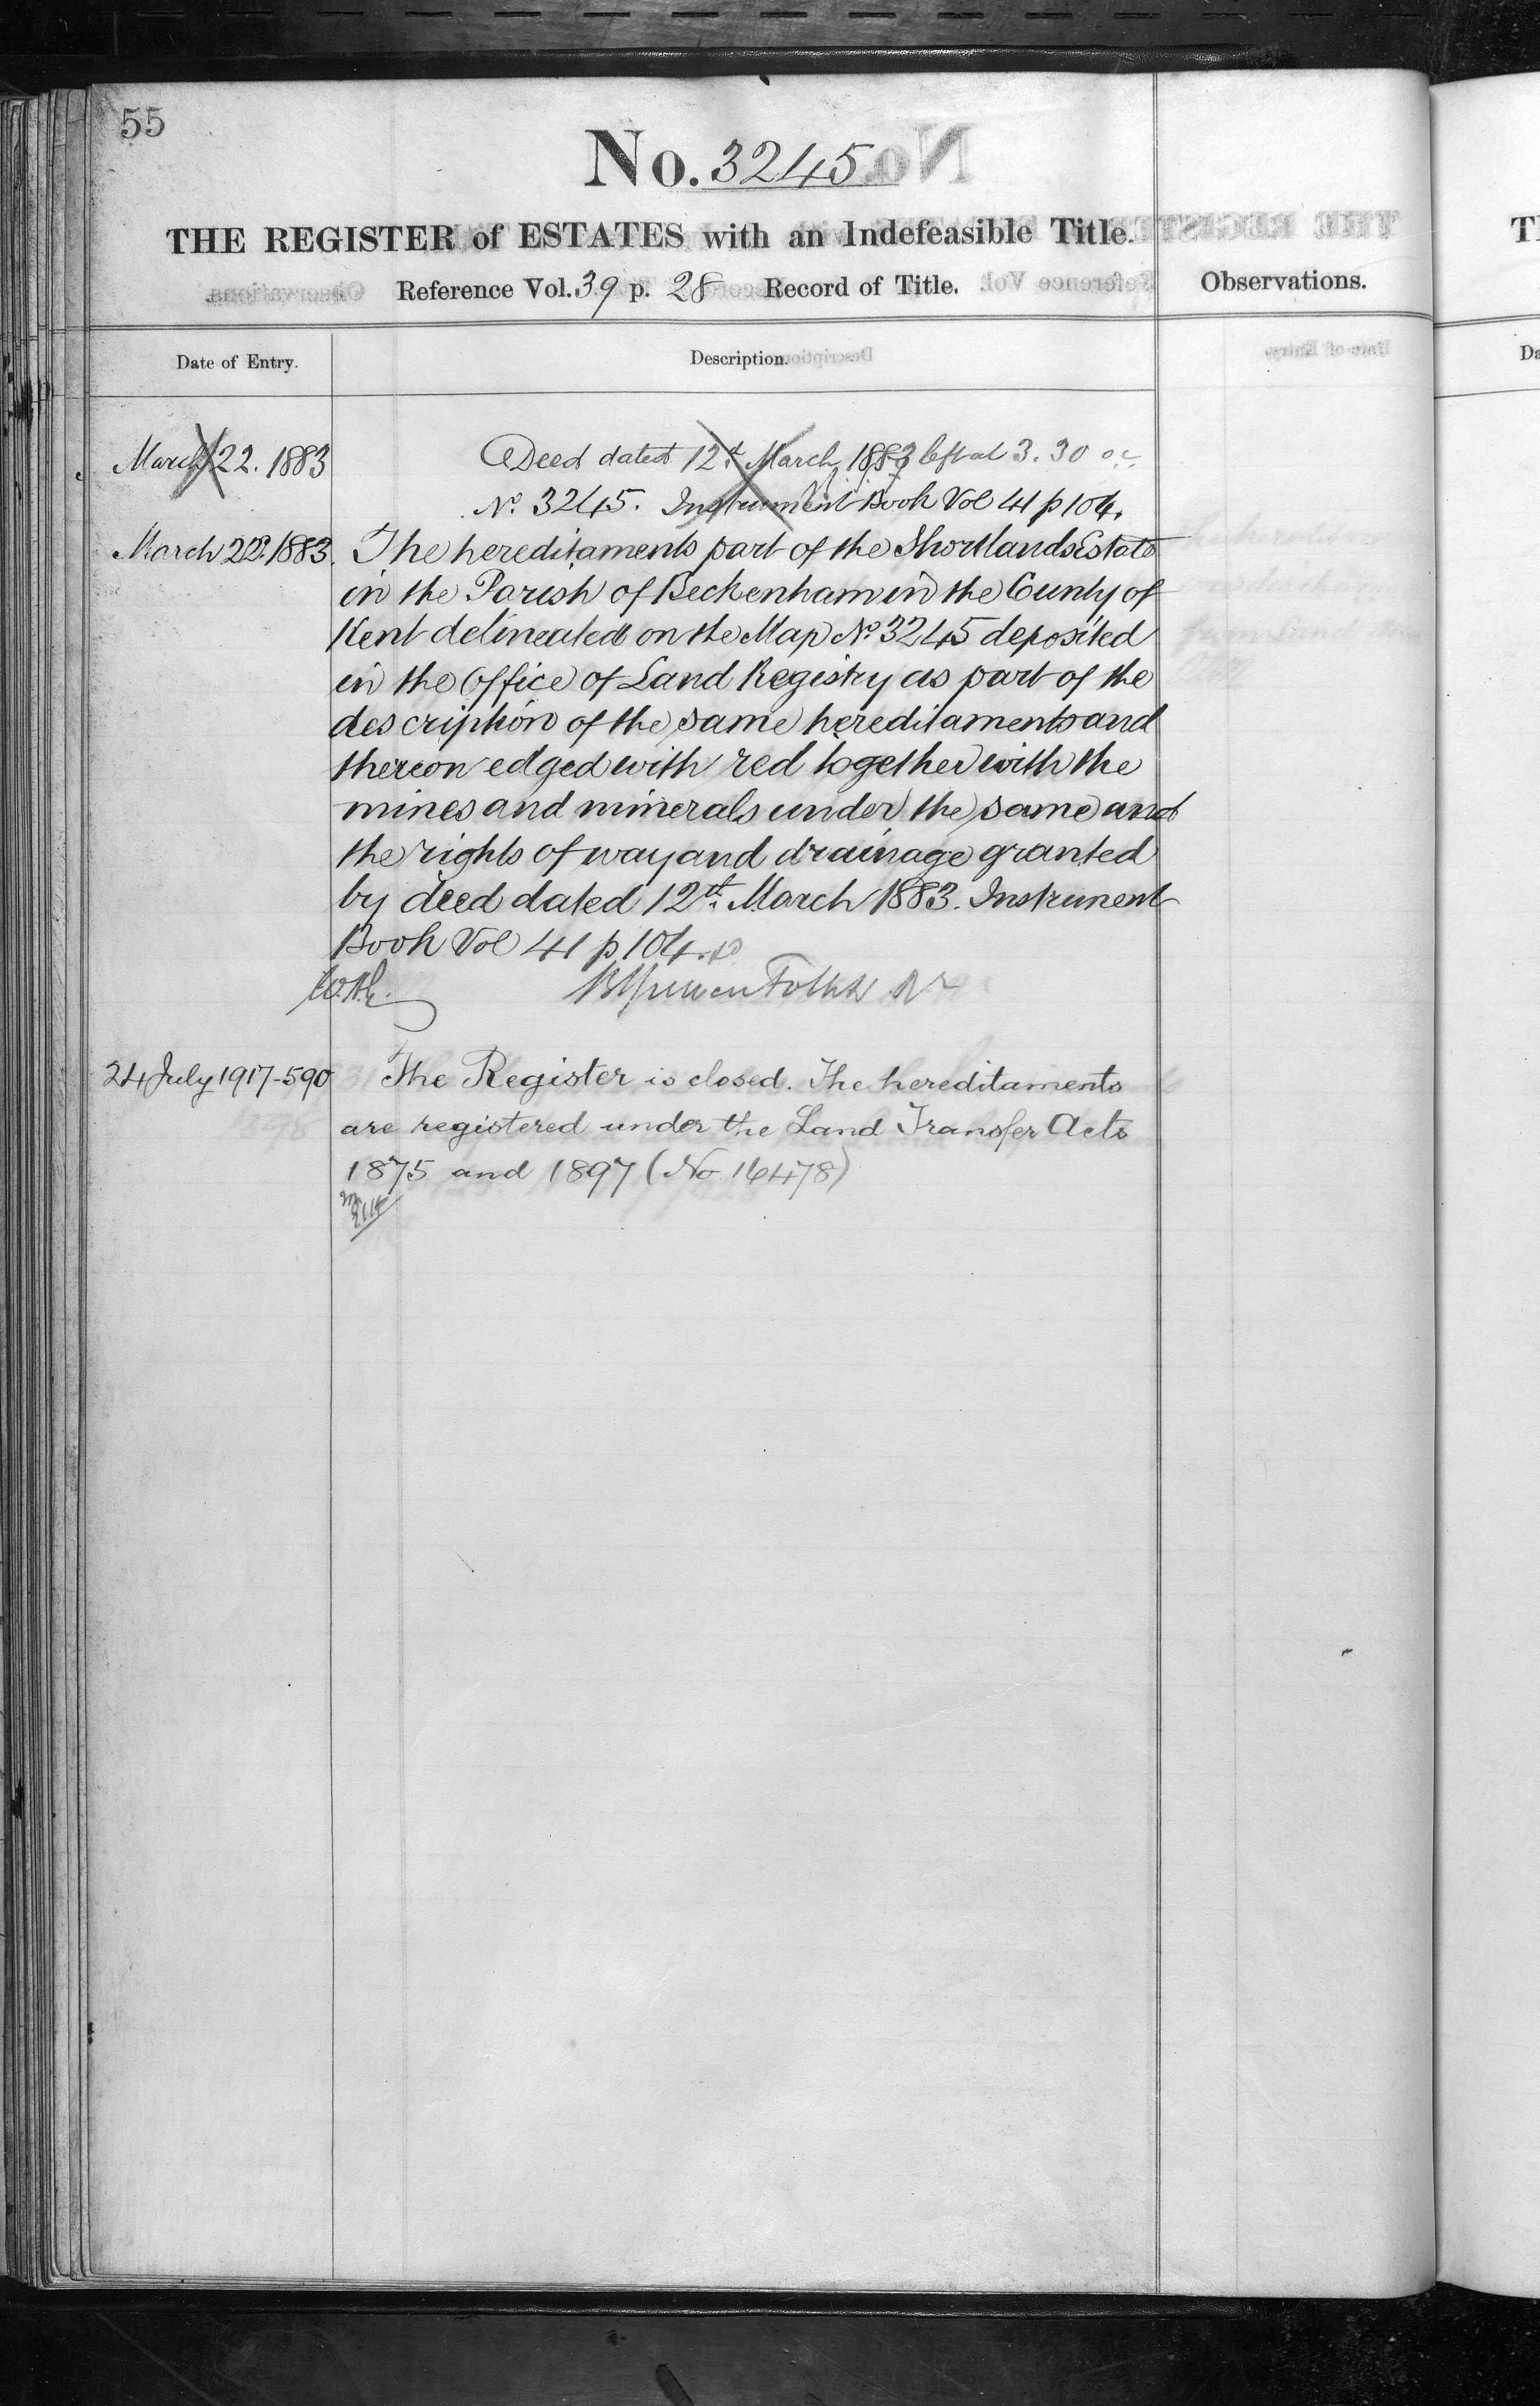 55
No. 3245
THE REGISTER of ESTATES with an Indefeasible Title.
Reference Vol. 39 p. 28 Record of Title.
Observations.
Date of Entry.
Description.
March 22. 1883
Deed dated 12th March 1883 left at 3.30 oc
No. 3245. Instrument Book Vol 41 p 104.
March 22. 1883.
The hereditaments part of the Shortlands Estate
in the Parish of Beckenham in the County of
Kent delineated on the Map No 3245 deposited
in the Office of Land Registry as part of the
description of the same hereditaments and
thereon edged with red together with the
mines and minerals under the same and
the rights of way and drainage granted
by deed dated 12th March 1883. Instrument
Book Vol 41 p 104.
24 July 1917-590
The Register is closed. The hereditaments
are registered under the Land Transfer Acts
1875 and 1897 (No 16478)